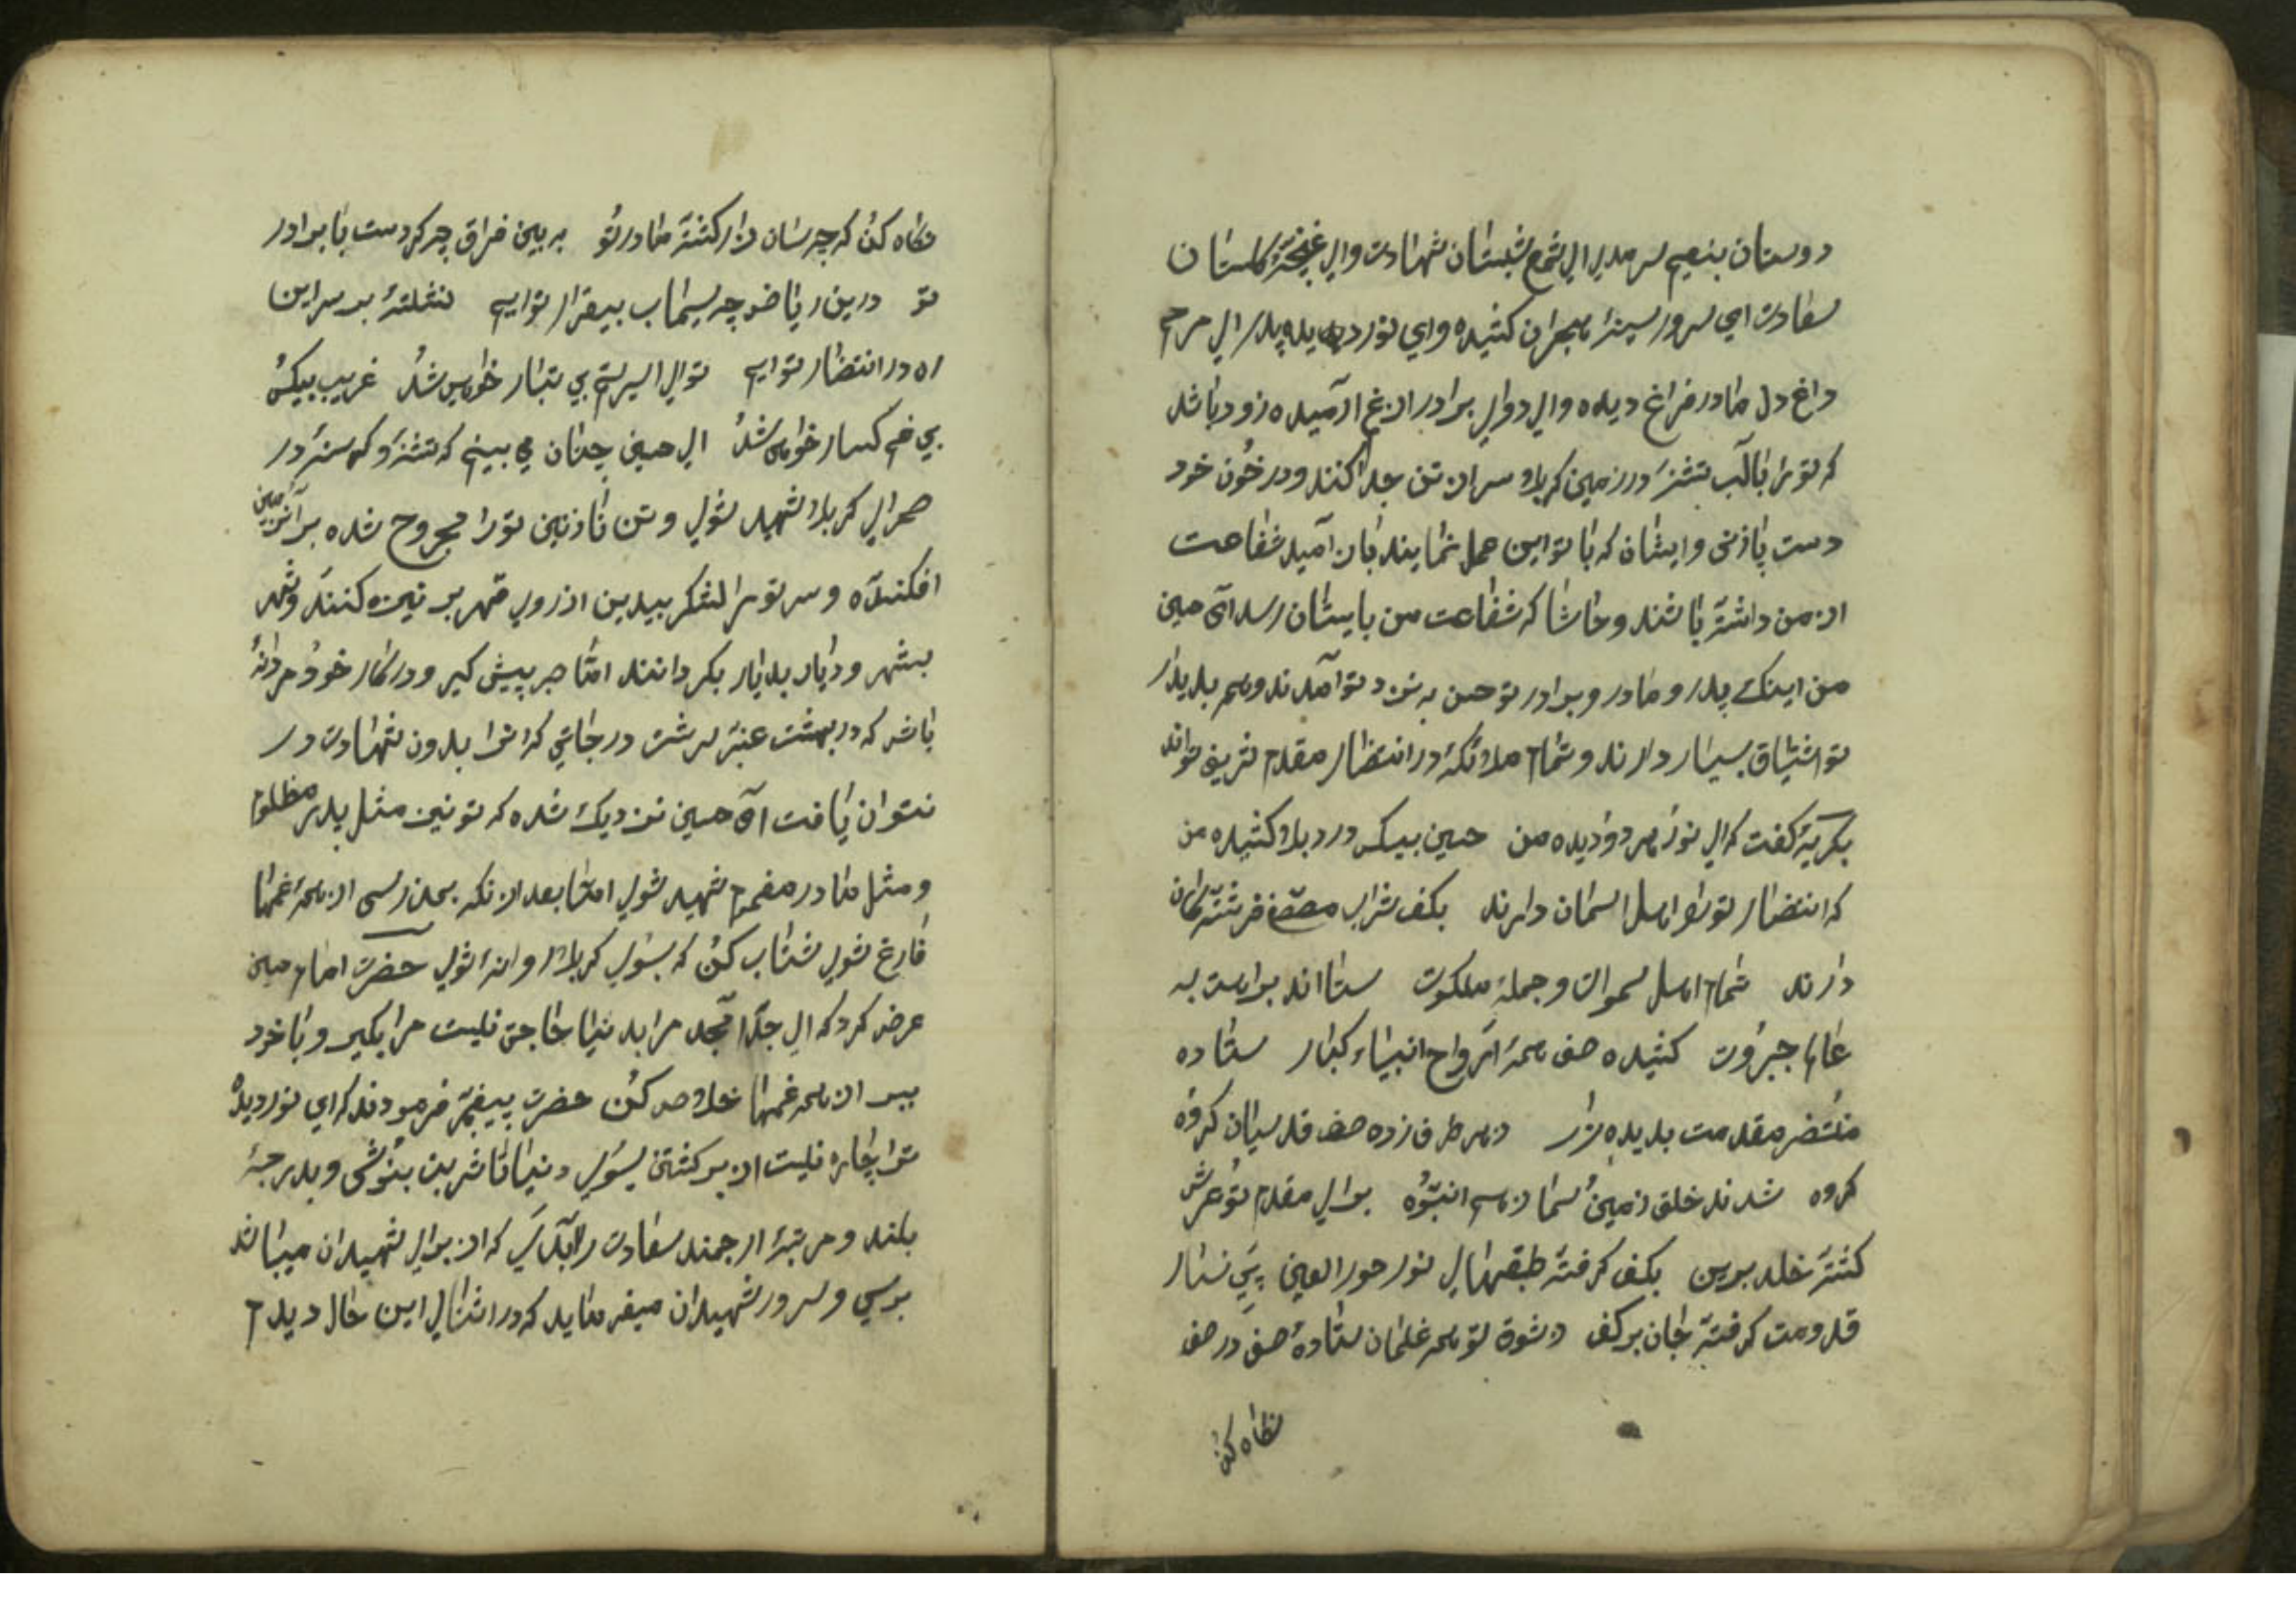 دوستان بنعیم سرمدی ای شمع شبستان شهادت وای غنچهٔ گلستان
سعادت ای سرور سینهٔ هجران کشیده وای نور دیده پدر ای مرهم
داغ دل مادر فراغ دیده وای دوای برادر از غم آرمیده زود باشد
که تو را با لب تشنه در زمین کربلا سر از تن جدا کنند و در خون خود
دست پا زنی و ایشان که با تو این عمل نمایند بان امید شفاعت
از من داشته باشند و حاشا که شفاعت من بایشان رسد آه حسین
من اینک پدر و مادر و برادر تو حسن به نزد تو آمدند و هم بدیدار
تو اشتیاق بسیار دارند و تمام ملائکه در انتظار مقدم شریف تواند
بگریه گفت که ای نور هر دو دیده من حسین بیکس و درد بلا کشیده من
که انتضار تو را اهل اسمان دارند بکف شراب مصفا فرشته کان
دارند تمام اهل سموات و جملهٔ ملکوت ستااند برایت به
عالم جبروت کشیده صف همهٔ ارواح انبیاء کبار ستاده
منتضر مقدمت بدیده زار ز هر طرف زده صف قدسیان کروه
کروه شدند خلق زمین سما ز هم انبوه برای مقدم تو عرش
کشته خلد برین بکف کرفته طبقهای نور حور العین پی نثار
قدومت کرفته جان برکف ز شوق تو همه غلمان ستاده صف در صف
نگاه کن
نگاه کن که چه سان زار کشته مادر تو به بین فراق چه کردست با برادر
تو درین ریاض چه سیماب بیقرار توایم نشسته بر سر این
راه در انتضار توایم توای اسیر ستم بی تبار خواهی شد غریب بیکس
بی غم کسار خواهی شد ای حسین چنان می بینم که تشنه و کرسنه در
صحرای کربلا شهید شوی و تن نازنین تو را مجروح شده بر آن زمین
افکنده و سر تو را لشکر بیدین از روی قهر بر نیزه کنند و شهر
بشهر و دیار بدیار بکردانند امّا صبر پیش کیر و در کار خود مردانهٔ
باش که در بهشت عنبر سرشت درجاتی که ترا بدون شهادت در
نتوان یافت آه حسین نزدیک شده که تو نیز مثل پدر مظلوم
و مثل مادر مغموم شهید شوی امّا بعد از انکه بمن رسی از همه غمها
فارغ شوی شتاب کن که بسوی کربلا روانه شوی حضرت امام حسین
عرض کرد که ای جدّ امجد مرا بدنیا حاجت نیست مرا بکیر و با خود
ببر از همه غمها خلاص کن حضرت پیغمبر فرمودند که ای نور دیده
ترا چاره نیست از برکشتن بسوی دنیا تا شربت بنوشی و بدرجهٔ
بلند و مرتبهٔ ارجمند سعادت که از برای شهیدان میباشد
برسی و سرور شهیدان میفرماید که در اثنای این حال دیدم